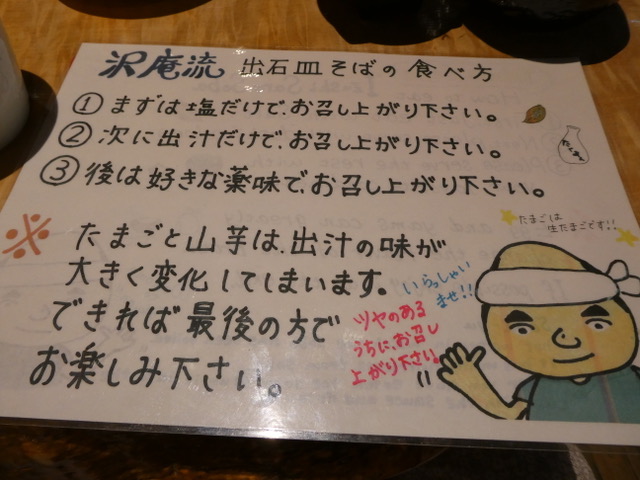 沢庵流 出石皿そばの食べ方
①まずは塩だけで、お召し上がり下さい。
②次に出汁だけで、お召し上がり下さい。
③後は好きな薬味で、お召し上がり下さい。
※たまごと山芋は、出汁の味が
大きく変化してしまいます。
できれば最後の方で
お楽しみ下さい。
たまごは
生たまごです!!
いらっしゃい
ませ!!
ツヤのある
うちに、お召し
上がり下さい。